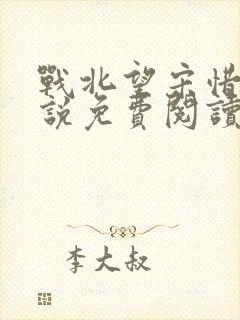 戰北望宋惜
說免費閱讀
李大叔